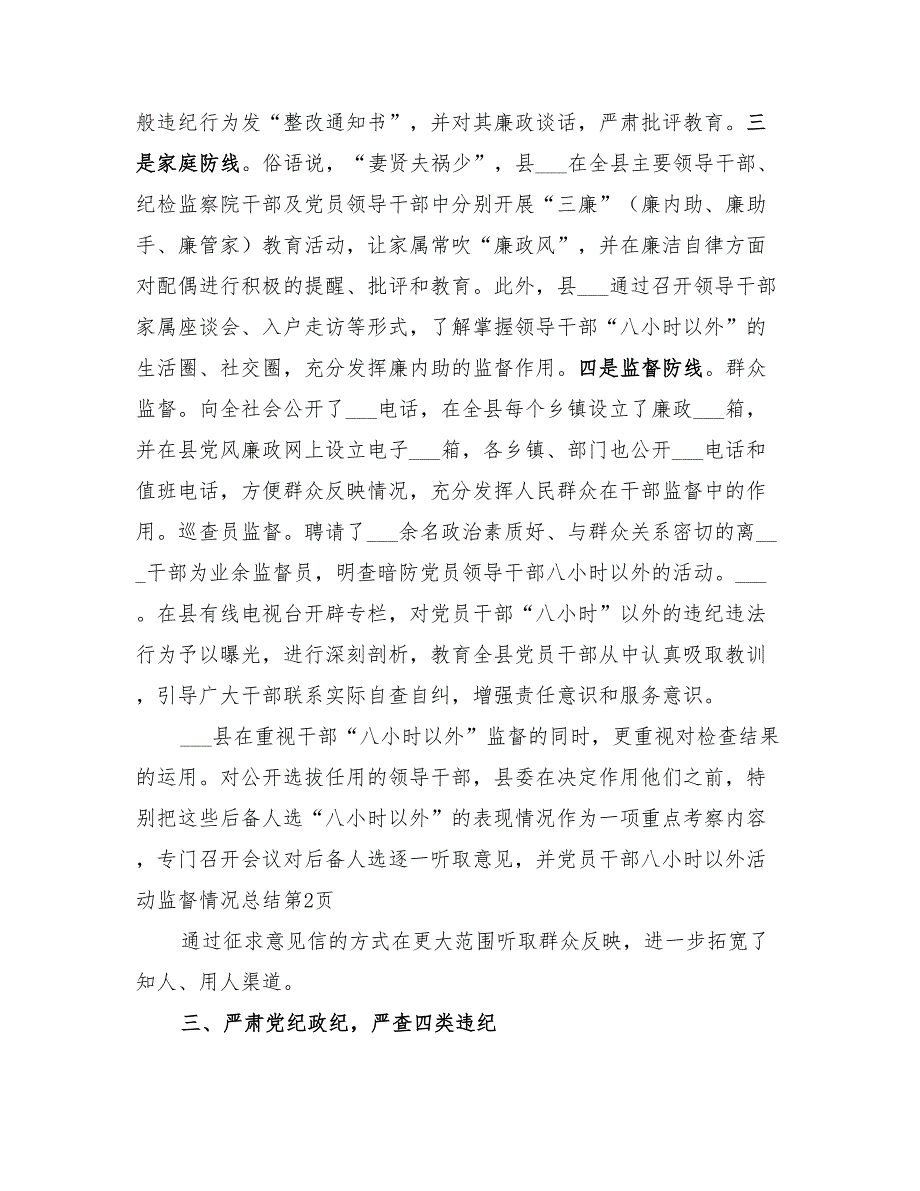 般违纪行为发“整改通知书”，并对其廉政谈话，严肃批评教育。三
是家庭防线。俗语说，“妻贤夫祸少”，县___在全县主要领导干部、
纪检监察院干部及党员领导干部中分别开展“三廉”（廉内助、廉助
手、廉管家）教育活动，让家属常吹“廉政风”，并在廉洁自律方面
对配偶进行积极的提醒、批评和教育。此外，县___通过召开领导干部
家属座谈会、入户走访等形式，了解掌握领导干部“八小时以外”的
生活圈、社交圈，充分发挥廉内助的监督作用。四是监督防线。群众
监督。向全社会公开了___电话，在全县每个乡镇设立了廉政___箱，
并在县党风廉政网上设立电子___箱，各乡镇、部门也公开___电话和
值班电话，方便群众反映情况，充分发挥人民群众在干部监督中的作
用。巡查员监督。聘请了___余名政治素质好、与群众关系密切的离__
_干部为业余监督员，明查暗防党员领导干部八小时以外的活动。___
。在县有线电视台开辟专栏，对党员干部“八小时”以外的违纪违法
行为予以曝光，进行深刻剖析，教育全县党员干部从中认真吸取教训
，引导广大干部联系实际自查自纠，增强责任意识和服务意识。
___县在重视干部“八小时以外”监督的同时，更重视对检查结果
的运用。对公开选拔任用的领导干部，县委在决定作用他们之前，特
别把这些后备人选“八小时以外”的表现情况作为一项重点考察内容
，专门召开会议对后备人选逐一听取意见，并党员干部八小时以外活
动监督情况总结第2页
通过征求意见信的方式在更大范围听取群众反映，进一步拓宽了
知人、用人渠道。
三、严肃党纪政纪，严查四类违纪